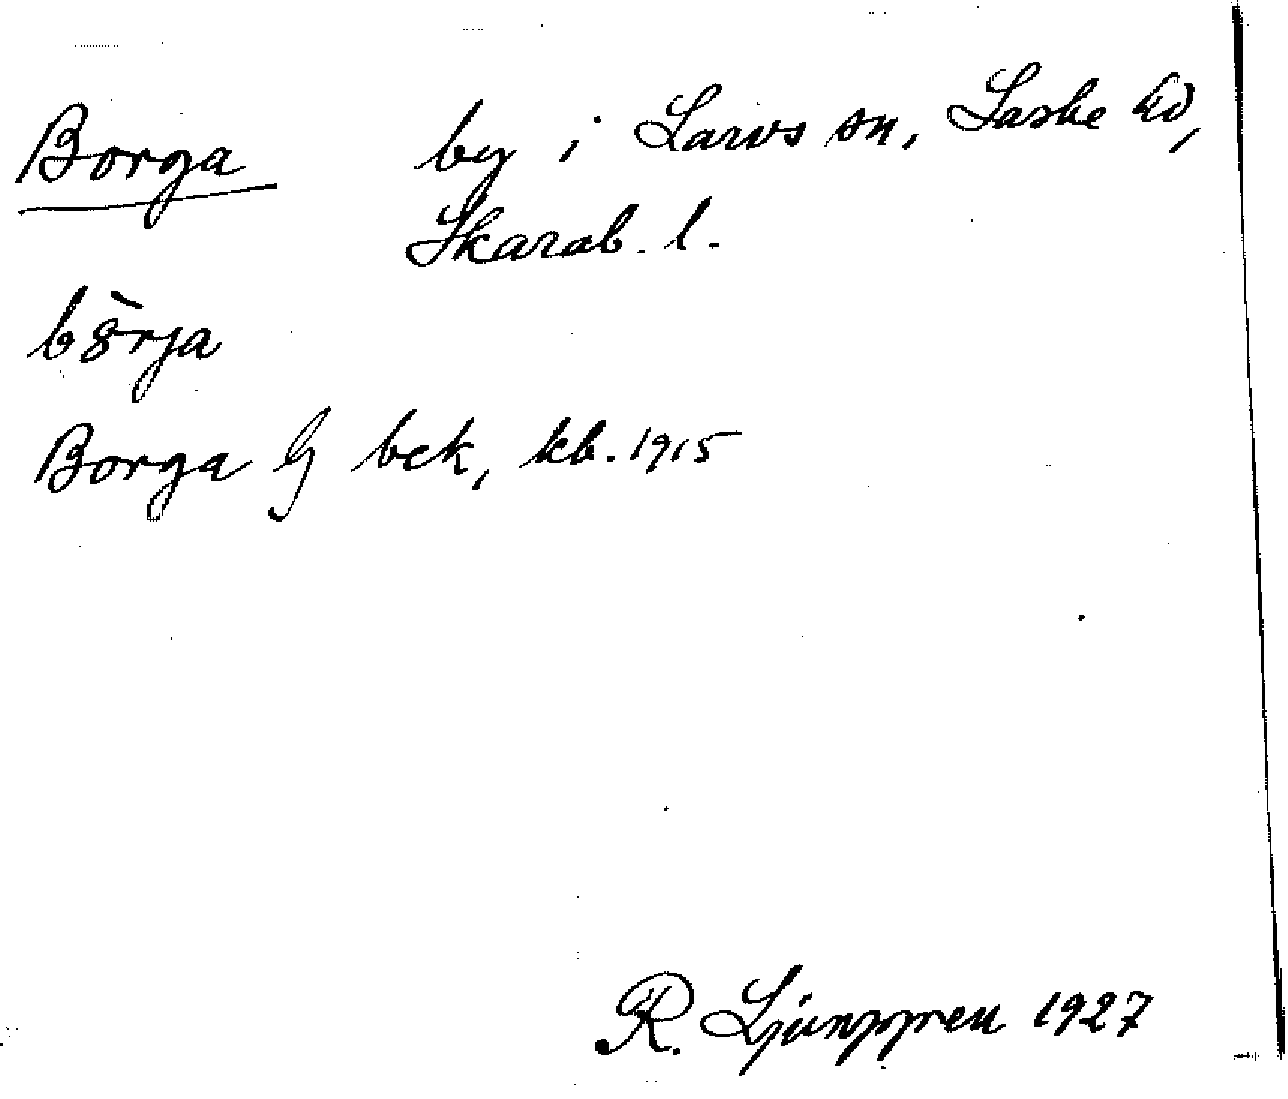 Borga by i Larvs sn, Laske hd,
Skarab. l.
Borga bek, kb. 1915
R. Ljunggren 1927